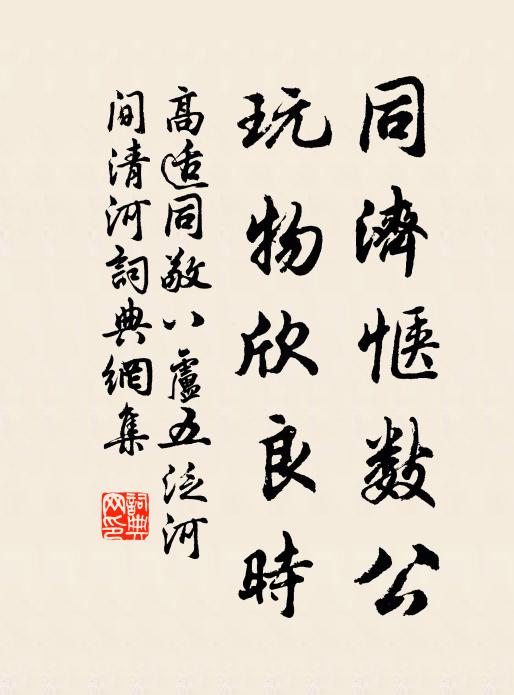 同濟愜數公
玩物欣良時
高適同敬八盧五泛河
間清河詞典網集
詞典網印